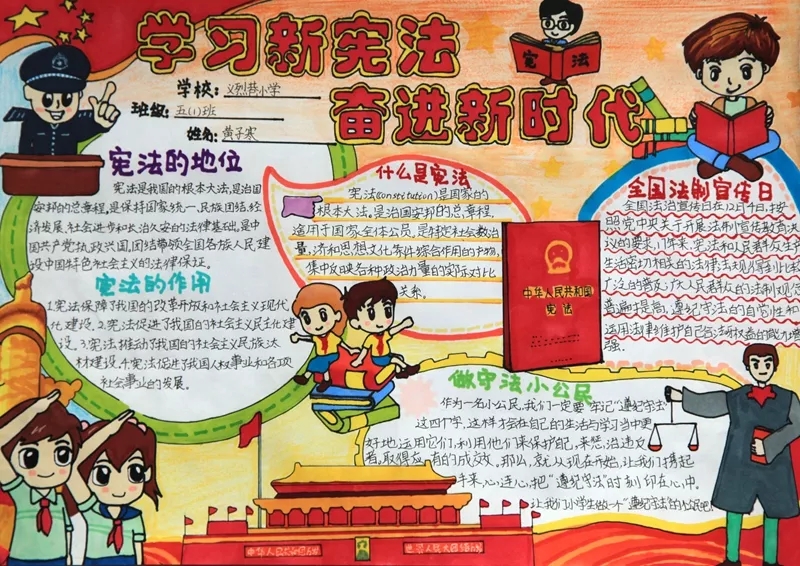 学习新宪法
奋进新时代
学校：义烈巷小学
班级：五(1)班
姓名：黄子寒
宪法
宪法的地位
宪法是我国的根本大法，是治国
安邦的总章程，是保持国家统一、民族团结、经
济发展、社会进步和长治久安的法律基础，是中
国共产党执政兴国，团结带领全国各族人民建
设中国特色社会主义的法律保证。
宪法的作用
1.宪法保障了我国的改革开放和社会主义现代
化建设，2.宪法促进了我国的社会主义民主化建
设，3.宪法推动了我国的社会主义民族法
材建设，4.宪法促进了我国人权事业和各项
社会事业的发展。
什么是宪法
宪法(constitution)是国家的
根本大法，是治国安邦的总章程，
适用于国家全体公民，是特定社会政治
济和思想文化条件综合作用的产物，
集中反映各种政治力量的实际对比
关系。
中华人民共和国
宪法
全国法制宣传日
全国法治宣传日在12月4日，按
照党中央关于开展法制宣传教育决
议的要求，
生活密切相关的法律法规
广泛的普及，广大人民群众的法制观念
普遍提高，遵纪守法的自觉性和
运用法律维护自己合法权益的能力增
强。
做守法小公民
作为一名小公民，我们一定要牢记"遵纪守法"
这四个字，这样才会在自己的生活与学习当中更
好地运用它们，利用他们来保护自己，来惩治违反
者，取得应有的成效。那么，就从现在开始，让我们携起
手来，心连心，把"遵纪守法"时刻印在心中，
让我们小学生做一个"遵纪守法"的小公民吧！